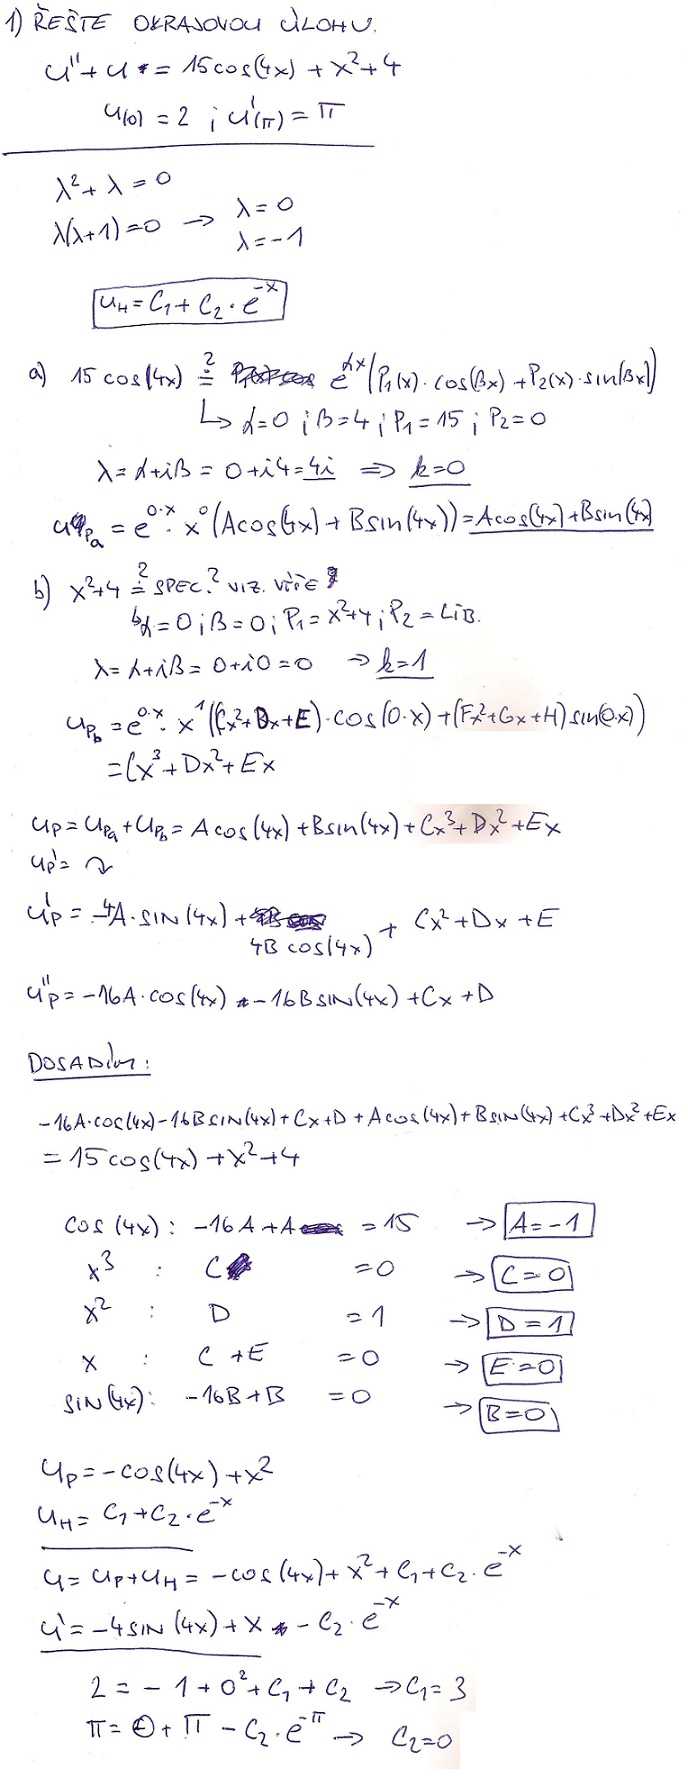 1) ŘEŠTE OKRAJOVOU ÚLOHU.
u'' + u = 15cos(4x) + x² + 4
u(0) = 2 ; u'(π) = π
λ² + λ = 0
λ(λ+1) = 0 → λ = 0
λ = -1
u_H = C₁ + C₂ · e^{-x}
a) 15 cos(4x) ≟ e^{αx}(P₁(x) · cos(βx) + P₂(x) · sin(βx))
↳ α = 0 ; β = 4 ; P₁ = 15 ; P₂ = 0
λ = α + iβ = 0 + i4 = 4i ⇒ k = 0
u_{Pa} = e^{0·x} · x⁰ (A cos(4x) + B sin(4x)) = A cos(4x) + B sin(4x)
b) x² + 4 ≟ SPEC.? VIZ. VÝŠE
↳ α = 0 ; β = 0 ; P₁ = x² + 4 ; P₂ = LIB.
λ = α + iβ = 0 + i0 = 0 → k = 1
u_{Pb} = e^{0·x} · x¹ ((Cx² + Dx + E) · cos(0·x) + (Fx² + Gx + H) sin(0·x))
= Cx³ + Dx² + Ex
u_P = u_{Pa} + u_{Pb} = A cos(4x) + B sin(4x) + Cx³ + Dx² + Ex
u_P' =
u_P' = -4A · SIN(4x) + 4B cos(4x) + Cx² + Dx + E
u_P'' = -16A · cos(4x) - 16B SIN(4x) + Cx + D
DOSADÍM:
-16A·cos(4x) - 16B SIN(4x) + Cx + D + A cos(4x) + B sin(4x) + Cx³ + Dx² + Ex
= 15 cos(4x) + x² + 4
cos(4x) : -16A + A = 15 → A = -1
x³ : C = 0 → C = 0
x² : D = 1 → D = 1
x : C + E = 0 → E = 0
SIN(4x) : -16B + B = 0 → B = 0
u_P = -cos(4x) + x²
u_H = C₁ + C₂ · e^{-x}
u = u_P + u_H = -cos(4x) + x² + C₁ + C₂ · e^{-x}
u' = -4 SIN(4x) + x - C₂ · e^{-x}
2 = -1 + 0² + C₁ + C₂ → C₁ = 3
π = 0 + π - C₂ · e^{-π} → C₂ = 0